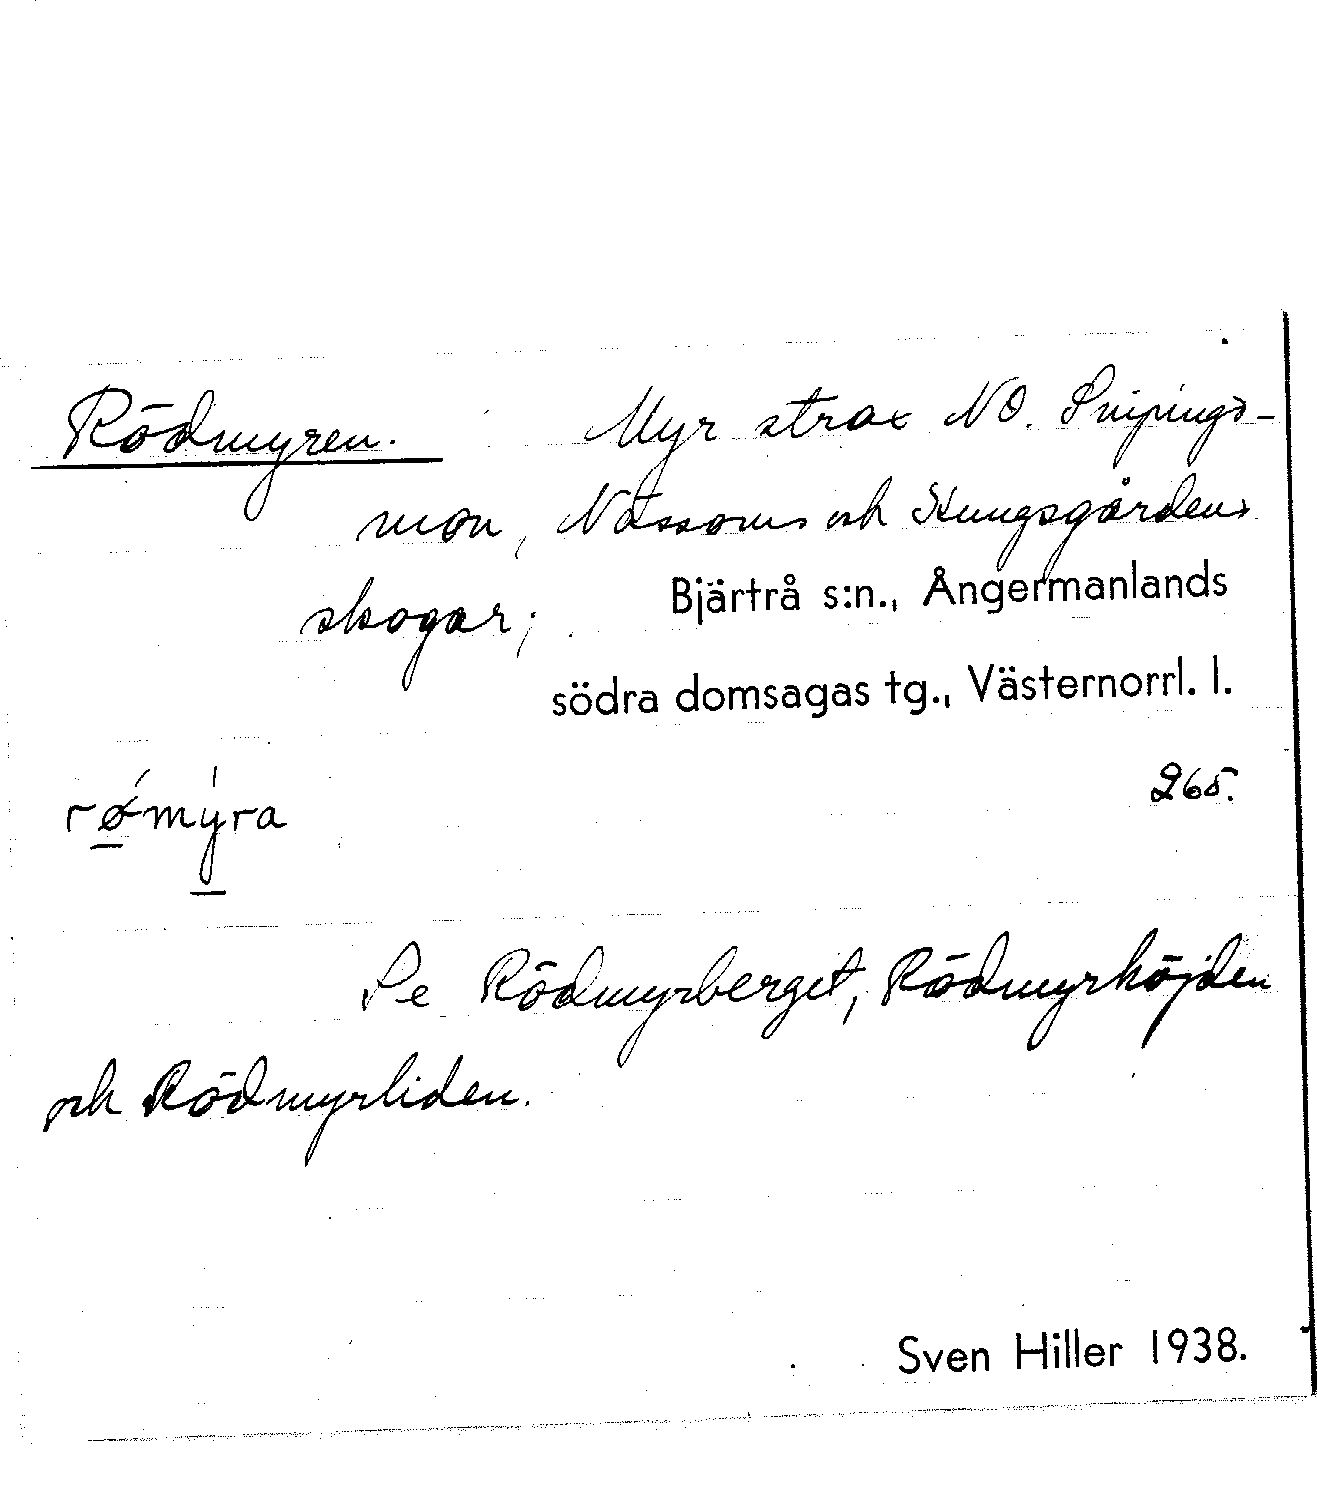 Rödmyren. Myr strax NO. Snipings-
mon, Nässoms och Kungsgårdens
skogar; Bjärtrå s:n., Ångermanlands
södra domsagas tg., Västernorrl. l.
265.
rø̲´mý̲ra
Se Rödmyrberget, Rödmyrhöjden
och Rödmyrliden.
Sven Hiller 1938.